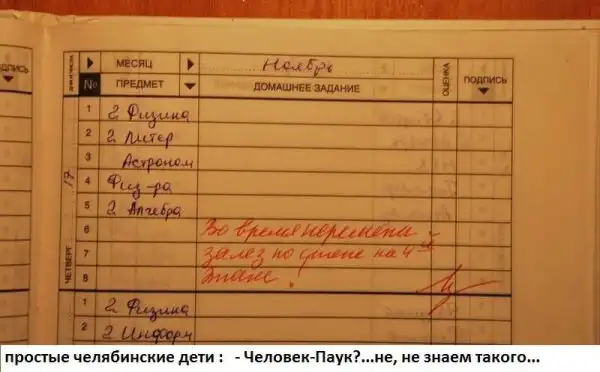 дписЬ
МЕСЯЦ Ноябрь
№ ПРЕДМЕТ ДОМАШНЕЕ ЗАДАНИЕ ОЦЕНКА ПОДПИСЬ
1 2 Физика
2 2 Литер
3 Астроном
4 Физ-ра
5 2 Алгебра
6 Во время перемены
7 залез по стене на 4ый
8 этаж.
ЧЕТВЕРГ 17
1 2 Физика
2 2 Информ
простые челябинские дети : - Человек-Паук?...не, не знаем такого...